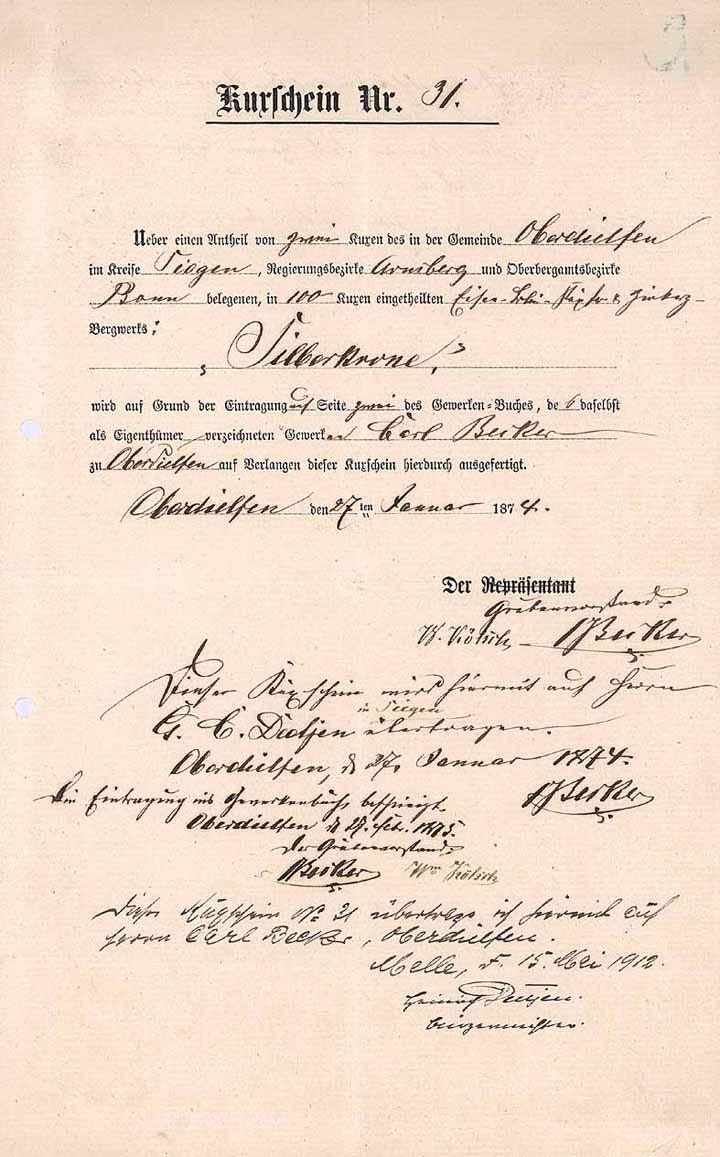 Kuxschein Nr. 31.
Ueber einen Antheil von zwei Kuxen des in der Gemeinde Oberdielfen
im Kreise Siegen, Regierungsbezirke Arnsberg und Oberbergamtsbezirke
Bonn belegenen, in 100 Kuxen eingetheilten Eisen-, Blei-, Kupfer- & Zinkerz-
Bergwerks:
„Silberkrone,"
wird auf Grund der Eintragung auf Seite zwei des Gewerken-Buches, de 6 daselbst
als Eigenthümer verzeichneten Gewerken Carl Becker
zu Oberdielfen auf Verlangen dieser Kuxschein hierdurch ausgefertigt.
Oberdielfen den 27 ten Januar 1874.
Der Repräsentant
Grubenvorstand:
W. Kölsch Becker
Dieser Kuxschein wird hiermit auf Herrn
in Siegen
G. C. Dütjen übertragen.
Oberdielfen, d 27. Januar 1874.
Becker
Die Eintragung ins Gewerkenbuch bescheinigt.
Oberdielfen d 27. Feb. 1875.
Der Grubenvorstand:
Becker Wm Kölsch
Diesen Kuxschein No 31 übertrage ich hiermit auf
Herrn Carl Becker, Oberdielfen.
Melle, d. 15. Mai 1912.
Heinrich Dütjen.
Bürgermeister.